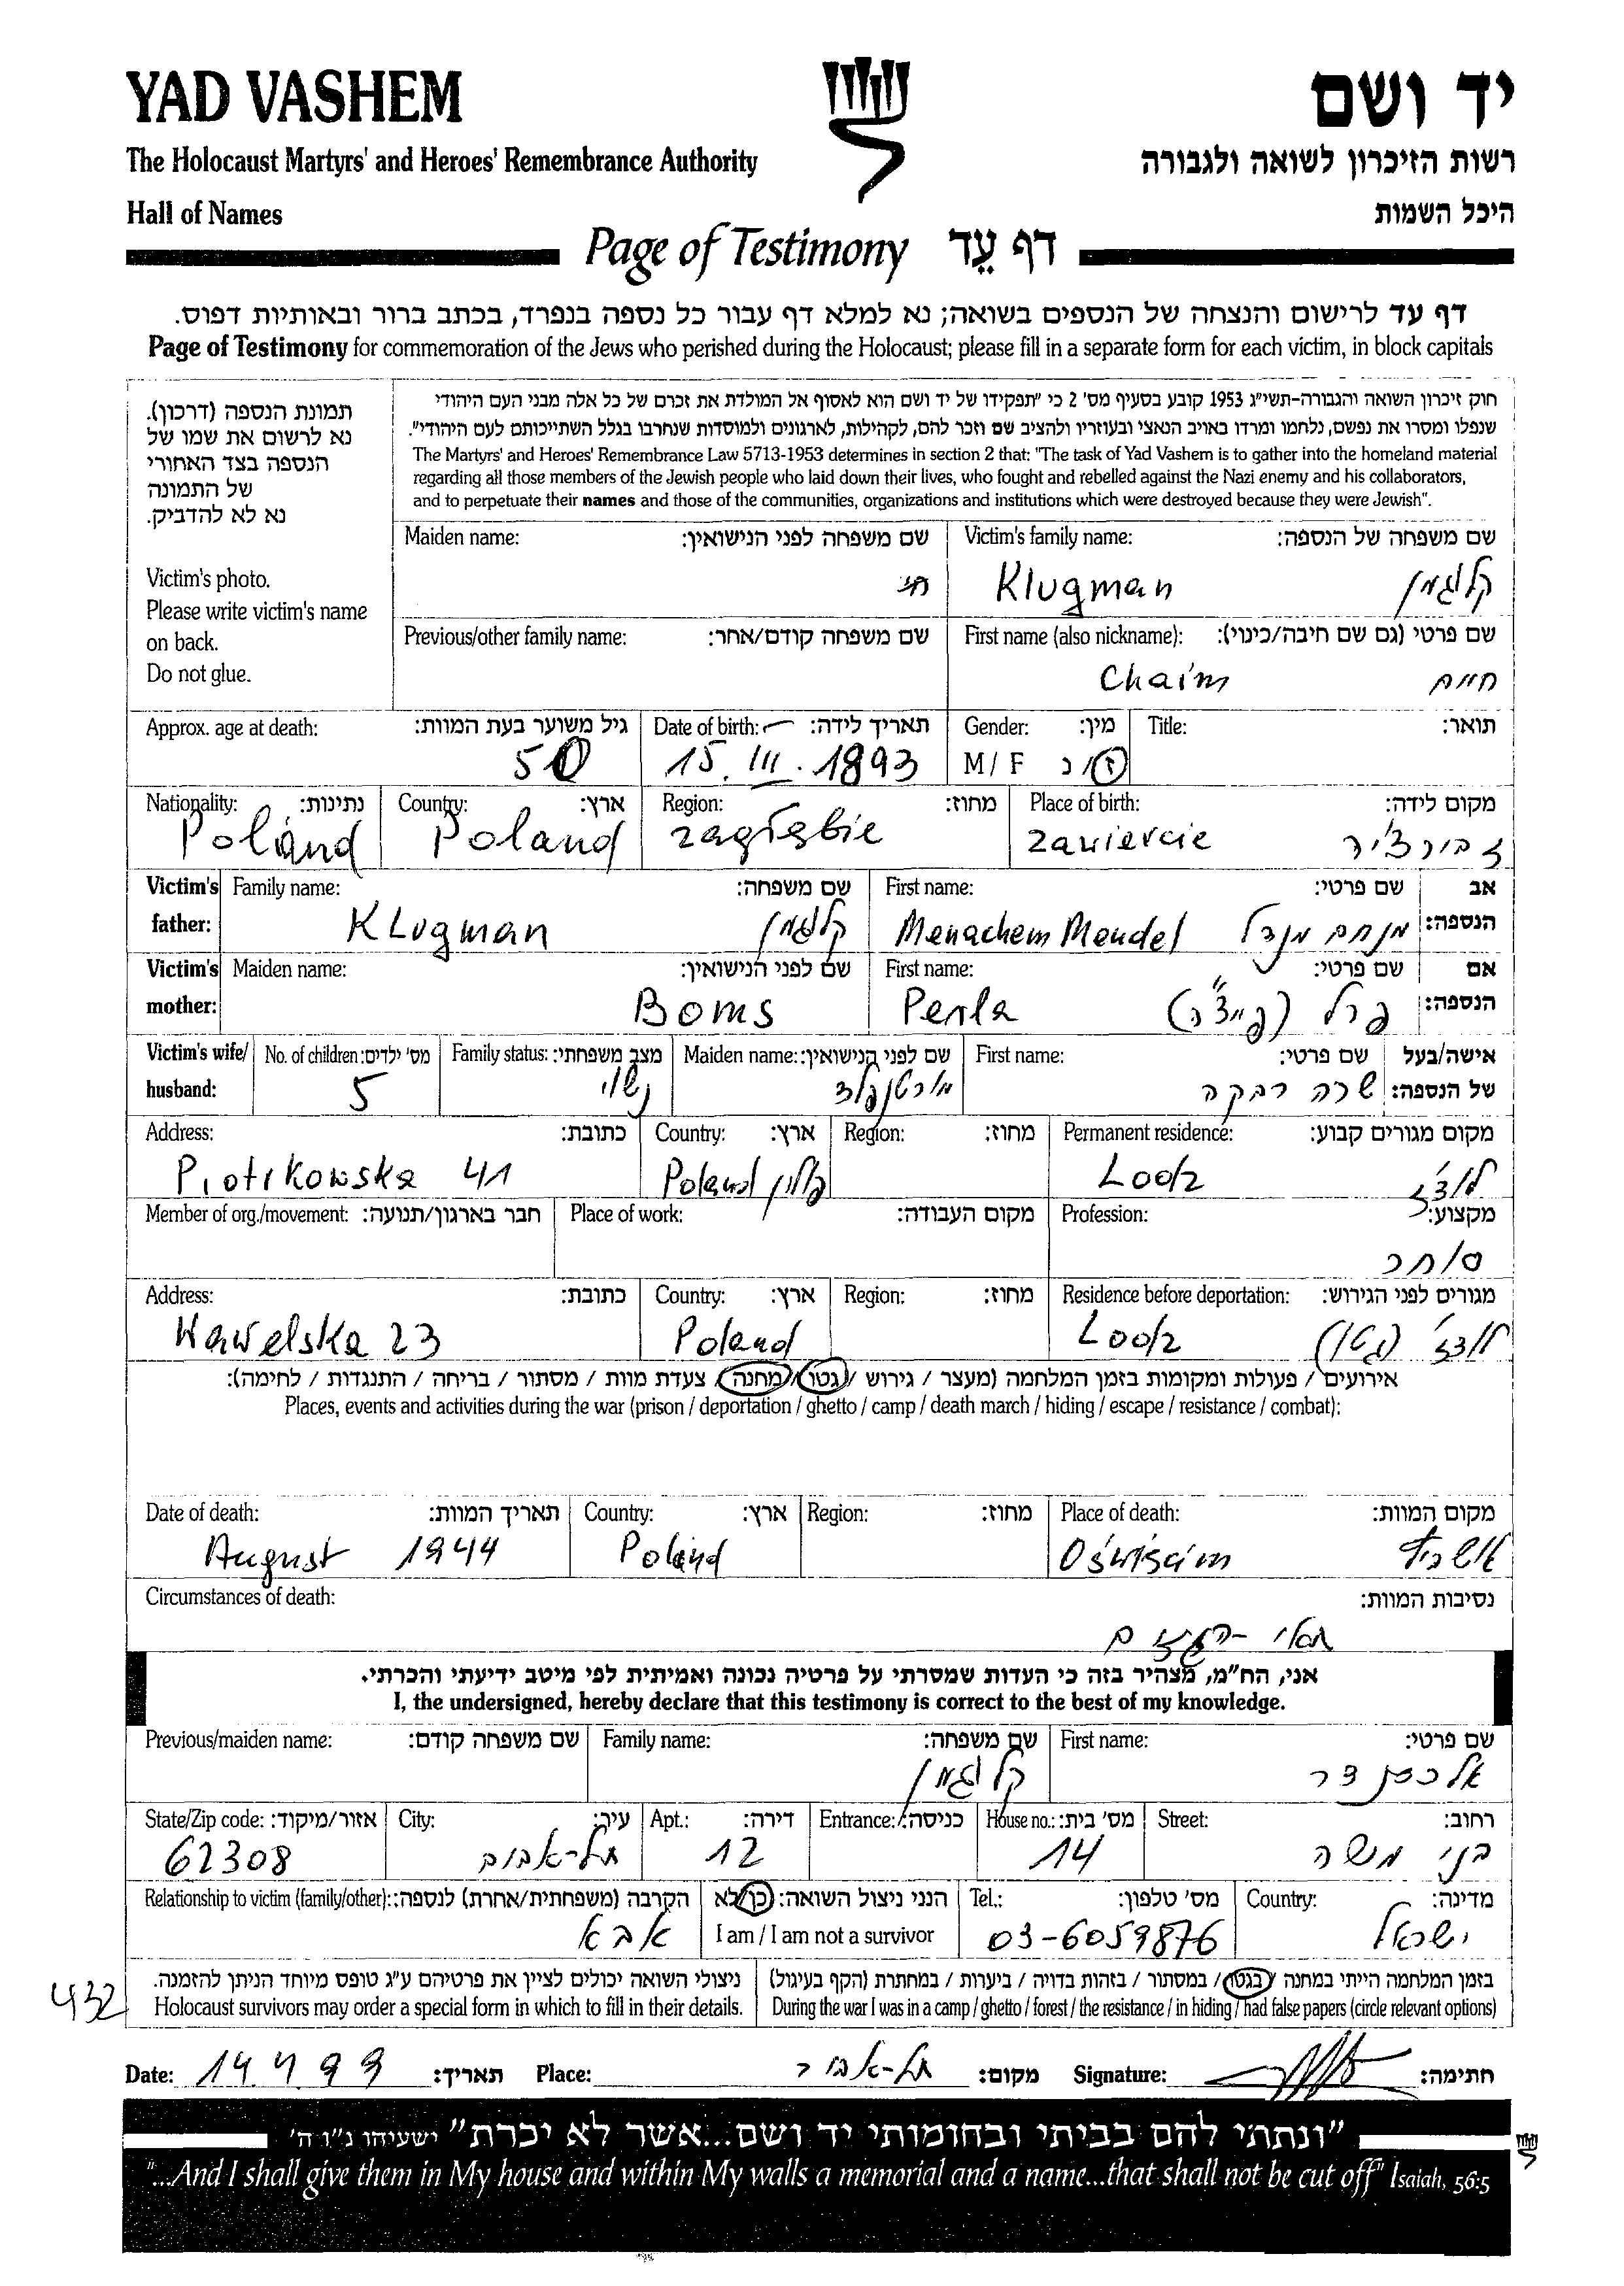 YAD VASHEM
יד ושם
The Holocaust Martyrs' and Heroes' Remembrance Authority
רשות הזיכרון לשואה ולגבורה
Hall of Names
היכל השמות
Page of Testimony דף עֵד
דף עד לרישום והנצחה של הנספים בשואה; נא למלא דף עבור כל נספה בנפרד, בכתב ברור ובאותיות דפוס.
Page of Testimony for commemoration of the Jews who perished during the Holocaust; please fill in a separate form for each victim, in block capitals
תמונת הנספה (דרכון).
נא לרשום את שמו של
הנספה בצד האחורי
של התמונה
נא לא להדביק.
Victim's photo.
Please write victim's name
on back.
Do not glue.
חוק זיכרון השואה והגבורה-תשי"ג 1953 קובע בסעיף מס' 2 כי "תפקידו של יד ושם הוא לאסוף אל המולדת את זכרם של כל אלה מבני העם היהודי
שנפלו ומסרו את נפשם, נלחמו ומרדו באויב הנאצי ובעוזריו ולהציב שם וזכר להם, לקהילות, לארגונים ולמוסדות שנחרבו בגלל השתייכותם לעם היהודי".
The Martyrs' and Heroes' Remembrance Law 5713-1953 determines in section 2 that: "The task of Yad Vashem is to gather into the homeland material
regarding all those members of the Jewish people who laid down their lives, who fought and rebelled against the Nazi enemy and his collaborators,
and to perpetuate their names and those of the communities, organizations and institutions which were destroyed because they were Jewish".
Maiden name: שם משפחה לפני הנישואין: Victim's family name: שם משפחה של הנספה:
Klugman קלוגמן
Previous/other family name: שם משפחה קודם/אחר: First name (also nickname): שם פרטי (גם שם חיבה/כינוי):
Chaim חיים
Approx. age at death: גיל משוער בעת המוות: Date of birth: תאריך לידה: Gender: מין: Title: תואר:
50 15. III. 1893 M / F ז/נ
Nationality: נתינות: Country: ארץ: Region: מחוז: Place of birth: מקום לידה:
Poland Poland Zagłębie Zawiercie זבירצ'יה
Victim's Family name: שם משפחה: First name: שם פרטי: אב
father: Klugman קלוגמן Menachem Mendel מנחם מנדל הנספה:
Victim's Maiden name: שם לפני הנישואין: First name: שם פרטי: אם
mother: Boms Perla פרל הנספה:
Victim's wife/ No. of children: מס' ילדים: Family status: מצב משפחתי: Maiden name: שם לפני הנישואין: First name: שם פרטי: אישה/בעל
husband: 5 נשוי שרה רבקה של הנספה:
Address: כתובת: Country: ארץ: Region: מחוז: Permanent residence: מקום מגורים קבוע:
Piotrkowska 41 Poland פולין Lodz לודז'
Member of org./movement: חבר בארגון/תנועה: Place of work: מקום העבודה: Profession: מקצוע:
סוחר
Address: כתובת: Country: ארץ: Region: מחוז: Residence before deportation: מגורים לפני הגירוש:
Wawelska 23 Poland Lodz לודז' (גטו)
אירועים / פעולות ומקומות בזמן המלחמה (מעצר / גירוש / גטו / מחנה / צעדת מוות / מסתור / בריחה / התנגדות / לחימה):
Places, events and activities during the war (prison / deportation / ghetto / camp / death march / hiding / escape / resistance / combat):
Date of death: תאריך המוות: Country: ארץ: Region: מחוז: Place of death: מקום המוות:
August 1944 Poland Oświęcim
Circumstances of death: נסיבות המוות:
תאי-הגזים
אני, הח"מ, מצהיר בזה כי העדות שמסרתי על פרטיה נכונה ואמיתית לפי מיטב ידיעתי והכרתי.
I, the undersigned, hereby declare that this testimony is correct to the best of my knowledge.
Previous/maiden name: שם משפחה קודם: Family name: שם משפחה: First name: שם פרטי:
קלוגמן אלכסנדר
State/Zip code: אזור/מיקוד: City: עיר: Apt.: דירה: Entrance: כניסה: House no.: מס' בית: Street: רחוב:
62308 תל-אביב 12 14 בני משה
Relationship to victim (family/other): הקרבה (משפחתית/אחרת) לנספה: הנני ניצול השואה: כן/לא Tel.: מס' טלפון: Country: מדינה:
אבא I am / I am not a survivor 03-6059876 ישראל
ניצולי השואה יכולים לציין את פרטיהם ע"ג טופס מיוחד הניתן להזמנה. בזמן המלחמה הייתי במחנה / בגטו / במסתור / בזהות בדויה / ביערות / במחתרת (הקף בעיגול)
432 Holocaust survivors may order a special form in which to fill in their details. During the war I was in a camp / ghetto / forest / the resistance / in hiding / had false papers (circle relevant options)
Date: 14 4 99 תאריך: Place: תל-אביב מקום: Signature: חתימה:
"ונתתי להם בביתי ובחומותי יד ושם...אשר לא יכרת" ישעיהו נ"ו ה'
"...And I shall give them in My house and within My walls a memorial and a name...that shall not be cut off" Isaiah, 56:5